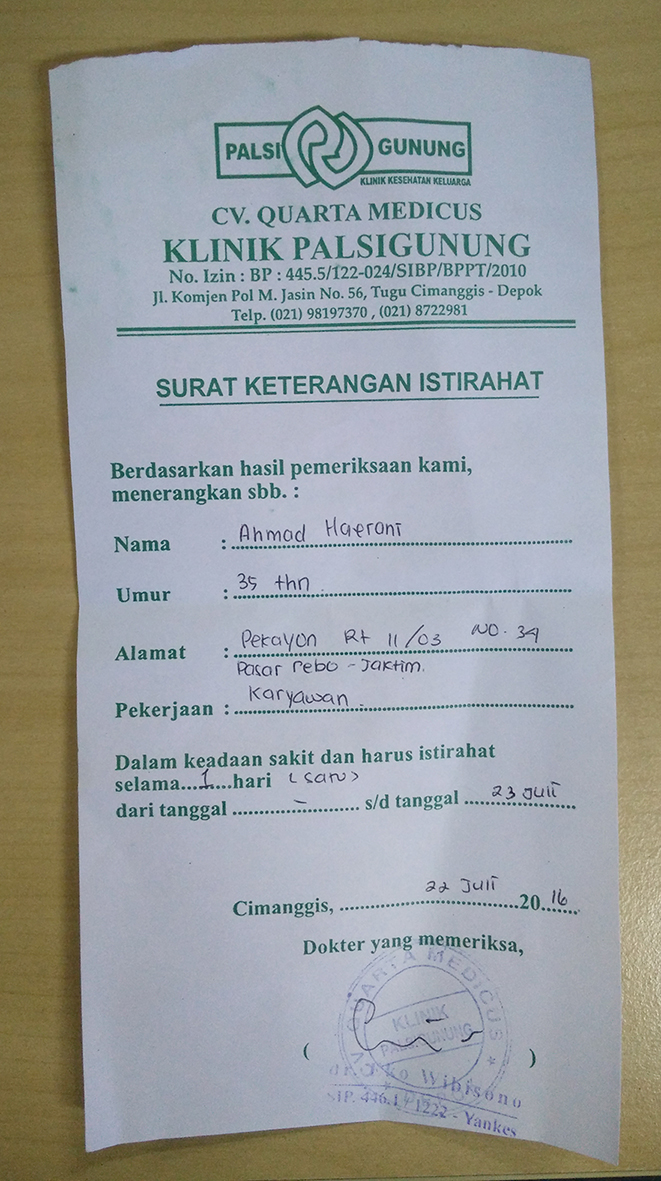 PALSI GUNUNG
KLINIK KESEHATAN KELUARGA
CV. QUARTA MEDICUS
KLINIK PALSIGUNUNG
No. Izin : BP : 445.5/122-024/SIBP/BPPT/2010
Jl. Komjen Pol M. Jasin No. 56, Tugu Cimanggis - Depok
Telp. (021) 98197370 , (021) 8722981
SURAT KETERANGAN ISTIRAHAT
Berdasarkan hasil pemeriksaan kami,
menerangkan sbb. :
Nama : Ahmad Haeroni
Umur : 35 thn
Alamat : Pekayon Rt 11/03 NO. 39
Pasar rebo - Jaktim.
Pekerjaan : Karyawan
Dalam keadaan sakit dan harus istirahat
selama...1...hari (satu)
dari tanggal ...-... s/d tanggal ...23 Juli...
Cimanggis, ...22 Juli...20..16..
Dokter yang memeriksa,
QUARTA MEDICUS
KLINIK
PALSIGUNUNG
( )
Wibisono
1222 - Yankes